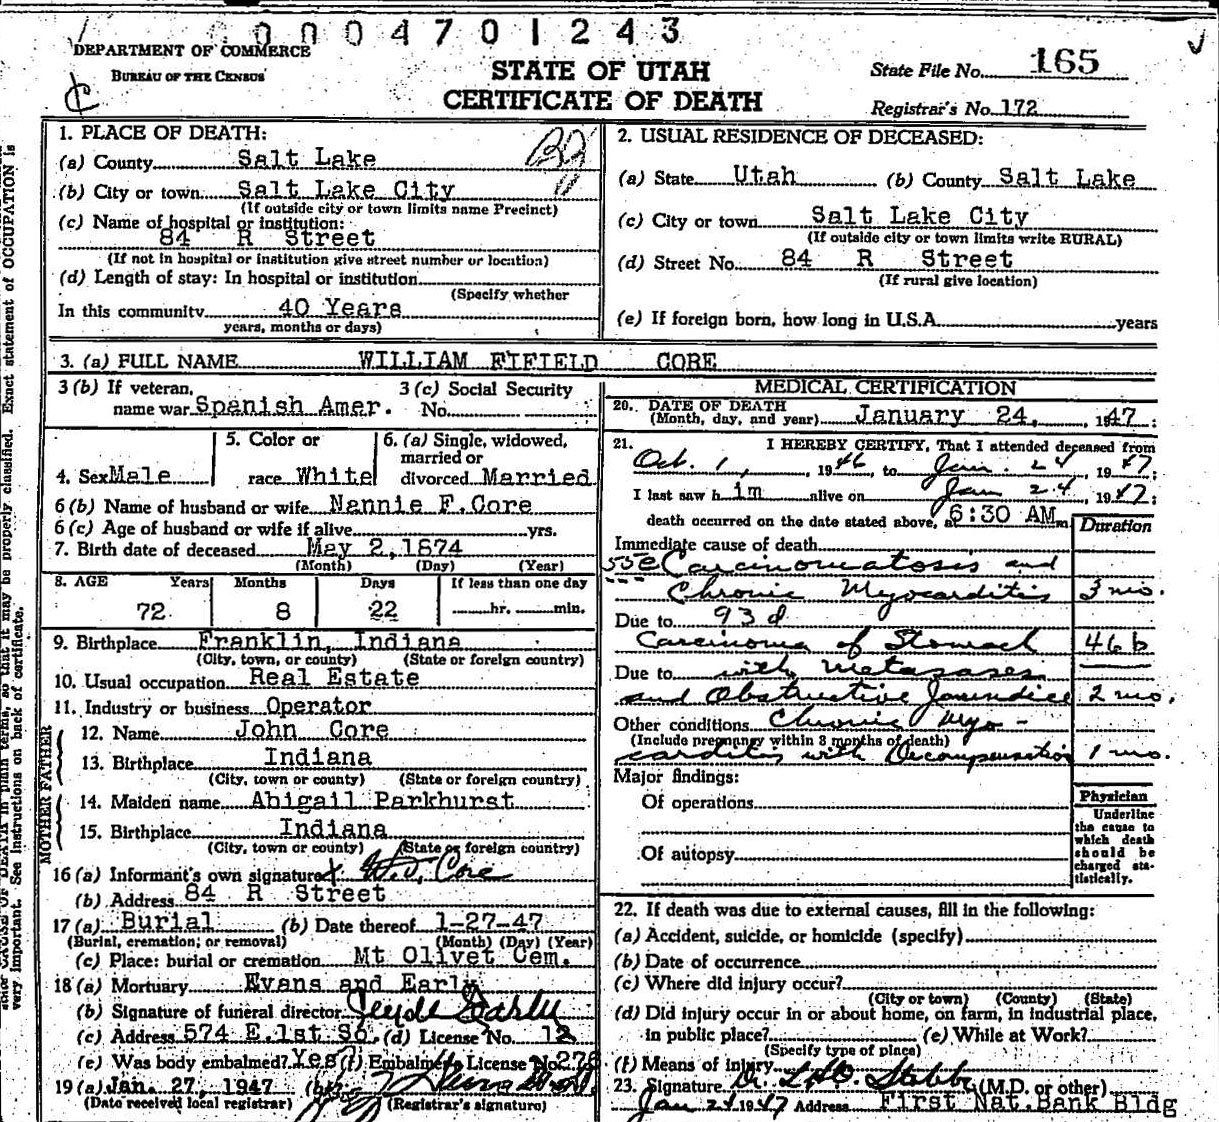 0004701243
DEPARTMENT OF COMMERCE
BUREAU OF THE CENSUS
STATE OF UTAH
CERTIFICATE OF DEATH
State File No. 165
Registrar's No. 172
1. PLACE OF DEATH:
(a) County Salt Lake
(b) City or town Salt Lake City
(If outside city or town limits name Precinct)
(c) Name of hospital or institution:
84 R Street
(If not in hospital or institution give street number or location)
(d) Length of stay: In hospital or institution
(Specify whether
In this community 40 Years
years, months or days)
2. USUAL RESIDENCE OF DECEASED:
(a) State Utah (b) County Salt Lake
(c) City or town Salt Lake City
(If outside city or town limits write RURAL)
(d) Street No. 84 R Street
(If rural give location)
(e) If foreign born, how long in U.S.A. years
3. (a) FULL NAME WILLIAM FIFIELD CORE
3 (b) If veteran, name war Spanish Amer.
3 (c) Social Security No.
4. Sex Male
5. Color or race White
6. (a) Single, widowed, married or divorced Married
6 (b) Name of husband or wife Nannie F. Core
6 (c) Age of husband or wife if alive yrs.
7. Birth date of deceased May 2, 1874
(Month) (Day) (Year)
8. AGE Years Months Days If less than one day
72 8 22 hr. min.
9. Birthplace Franklin, Indiana
(City, town, or county) (State or foreign country)
10. Usual occupation Real Estate
11. Industry or business Operator
FATHER
12. Name John Core
13. Birthplace Indiana
(City, town or county) (State or foreign country)
MOTHER
14. Maiden name Abigail Parkhurst
15. Birthplace Indiana
(City, town or county) (State or foreign country)
16 (a) Informant's own signature W.F. Core
(b) Address 84 R Street
17 (a) Burial (b) Date thereof 1-27-47
(Burial, cremation, or removal) (Month) (Day) (Year)
(c) Place: burial or cremation Mt Olivet Cem.
18 (a) Mortuary Evans and Early
(b) Signature of funeral director
(c) Address 574 E. 1st So. (d) License No. 12
(e) Was body embalmed? Yes (f) Embalmer's License No. 276
19 (a) Jan. 27, 1947 (b)
(Date received local registrar) (Registrar's signature)
MEDICAL CERTIFICATION
20. DATE OF DEATH
(Month, day, and year) January 24, 1947:
21. I HEREBY CERTIFY, That I attended deceased from
Oct. 1, 1946 to Jan. 24 1947:
I last saw him alive on Jan 24, 1947:
death occurred on the date stated above, at 6:30 AM m.
Duration
Immediate cause of death
55e Carcinomatosis and
Chronic Myocarditis 3 mo.
Due to 93d
Carcinoma of Stomach 46b
Due to with metazases
and Obstructive Jaundice 2 mo.
Other conditions Chronic Myo-
(Include pregnancy within 3 months of death)
carditis with Decompensation 1 mo.
Major findings:
Of operations
Of autopsy
Physician
Underline
the cause to
which death
should be
charged sta-
tistically.
22. If death was due to external causes, fill in the following:
(a) Accident, suicide, or homicide (specify)
(b) Date of occurrence
(c) Where did injury occur?
(City or town) (County) (State)
(d) Did injury occur in or about home, on farm, in industrial place,
in public place? (e) While at Work?
(Specify type of place)
(f) Means of injury
23. Signature Dr. (M.D. or other)
Jan 24 1947 Address First Nat. Bank Bldg
very important. See instructions on back of certificate.
so that it may be properly classified. Exact statement of OCCUPATION is